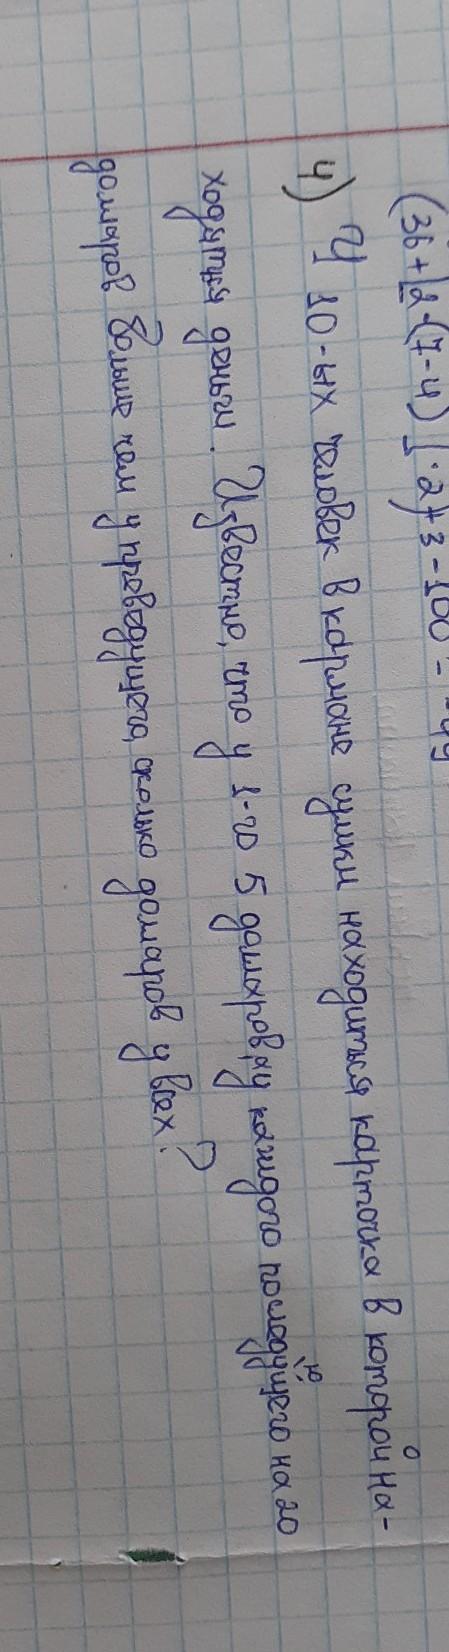 (36+|2-(7-4)|·2)+3-100=-49
4) У 10-ых человек в кармане сумки находиться карточка в которой на-
ходиться деньги. Известно, что у 1-го 5 долларов, а у каждого последующего на 20
долларов больше чем у предедущего, сколько долларов у всех?